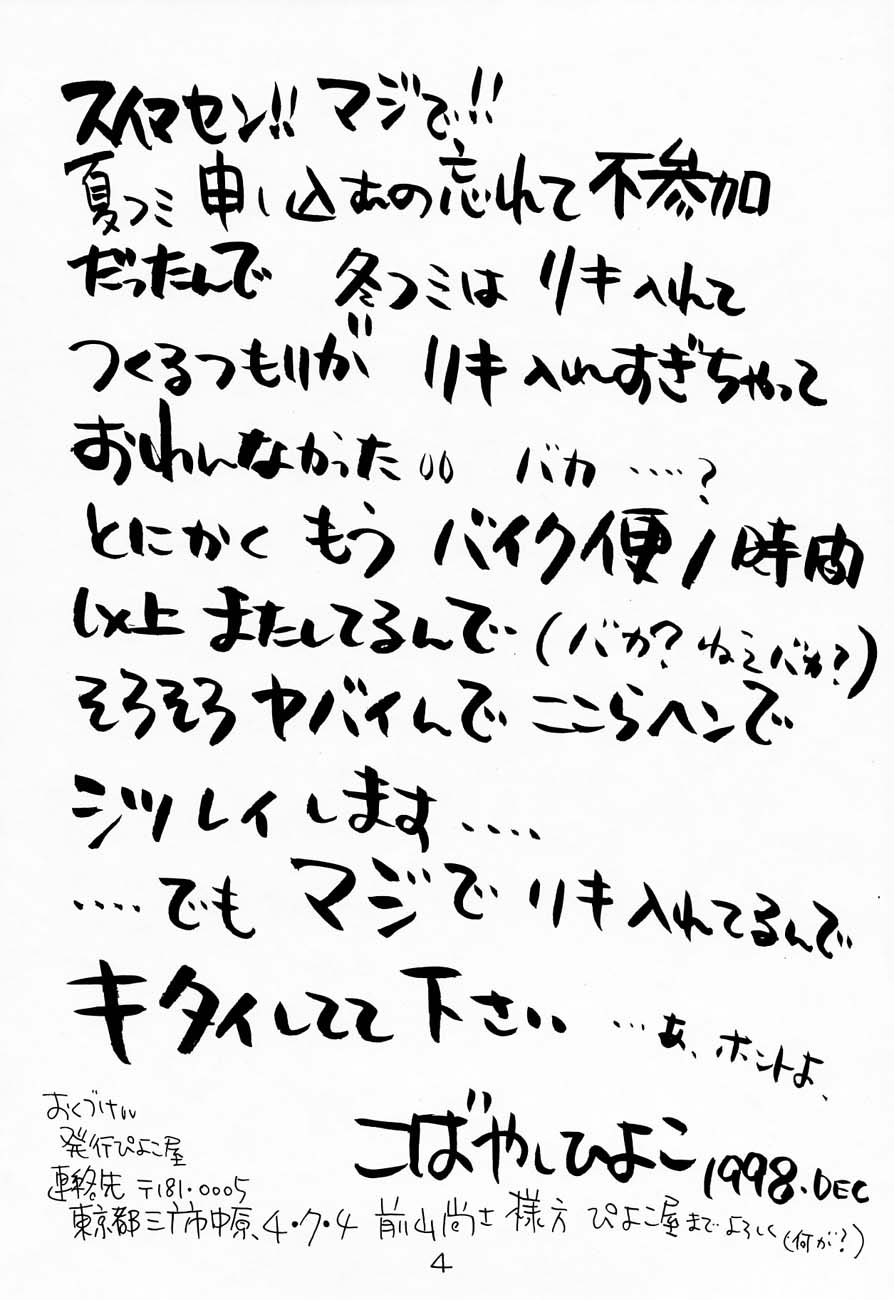 スイマセン!! マジで!!
夏コミ 申し込むの忘れて 不参加
だったんで 冬コミは リキ入れて
つくるつもりが リキ入れすぎちゃって
おわんなかった〃 バカ ‥‥?
とにかく もう バイク便 1時間
以上 またしてるんで (バカ? ねこバカ?)
そろそろ ヤバイんで ここらヘンで
シツレイします ‥‥
‥‥でも マジで リキ入れてるんで
キタイしてて 下さい …あ、ホントよ、
おくづけ〃
こばやしひよこ 1998.DEC
発行ぴよこ屋
連絡先 〒181・0005
東京都三鷹市中原、4・7・4 前山尚士 様方 ぴよこ屋まで よろしく (何が?)
4